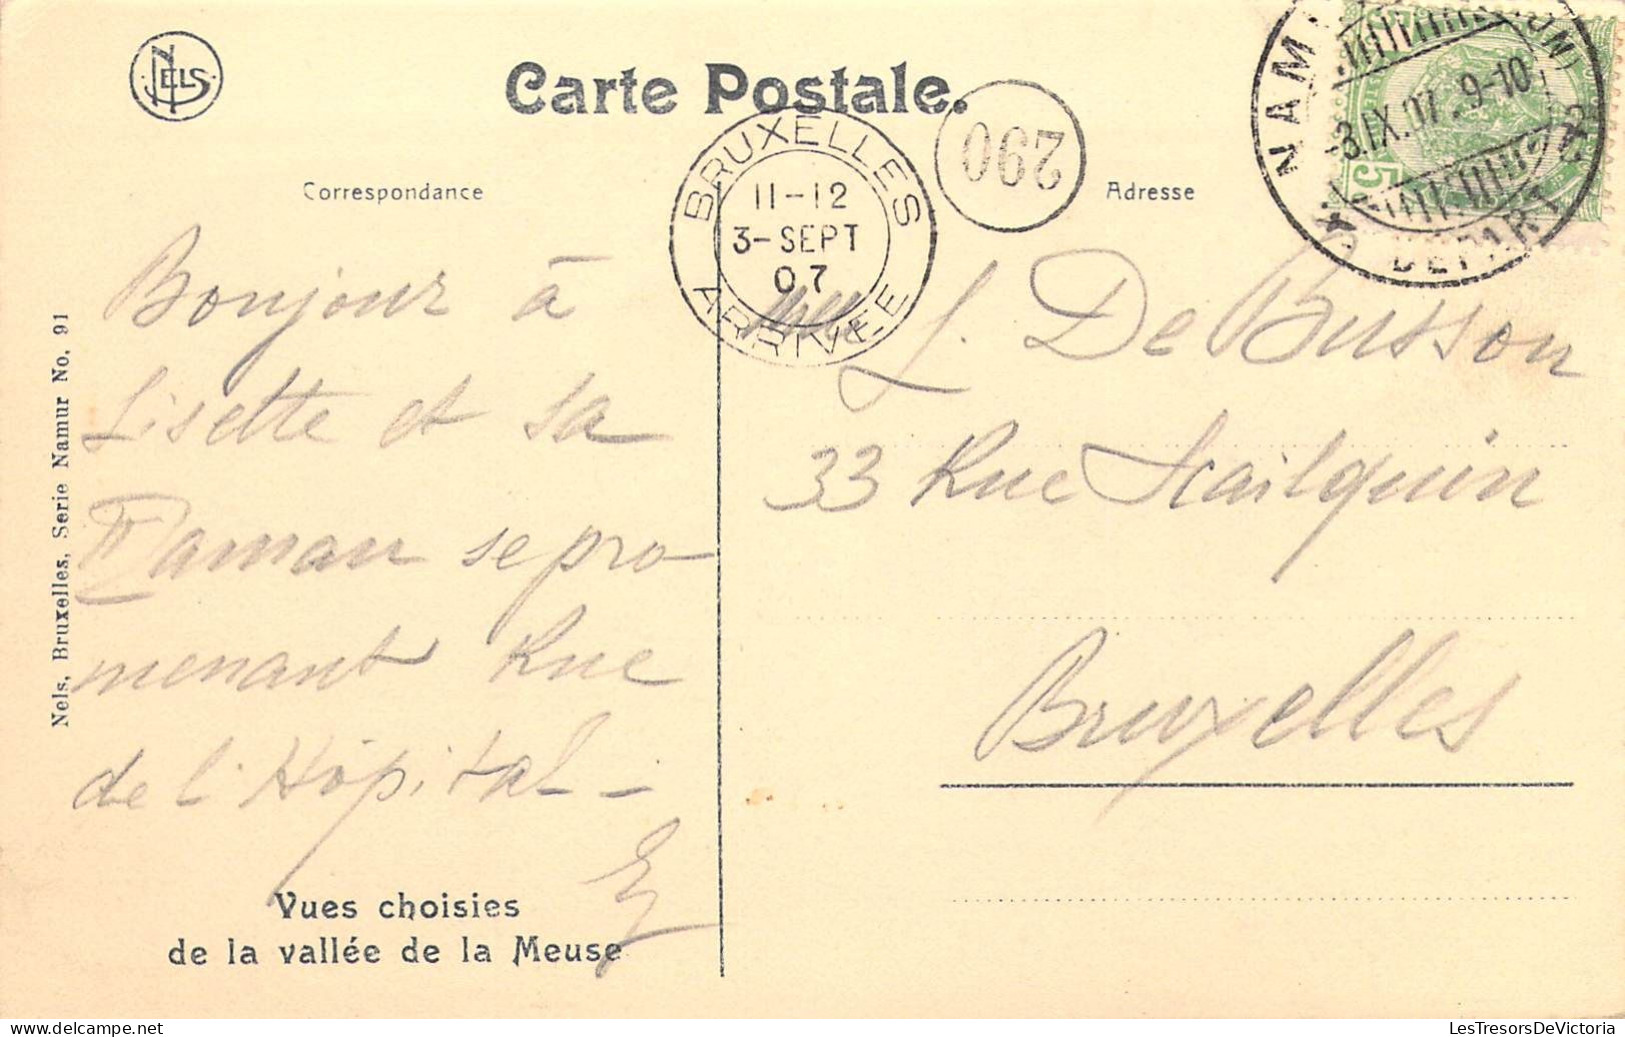 NELS
Carte Postale.
Correspondance
Adresse
BRUXELLES
11-12
3-SEPT
07
ARRIVÉE
290
NAMUR
3.IX.07. 9-10
DEPART
5
Bonjour à
Lisette et sa
Maman se pro
menant Rue
de l'Hôpital
Mlle L. De Busson
33 Rue Scailquin
Bruxelles
Vues choisies
de la vallée de la Meuse
Nels, Bruxelles, Serie Namur No. 91
LesTresorsDeVictoria